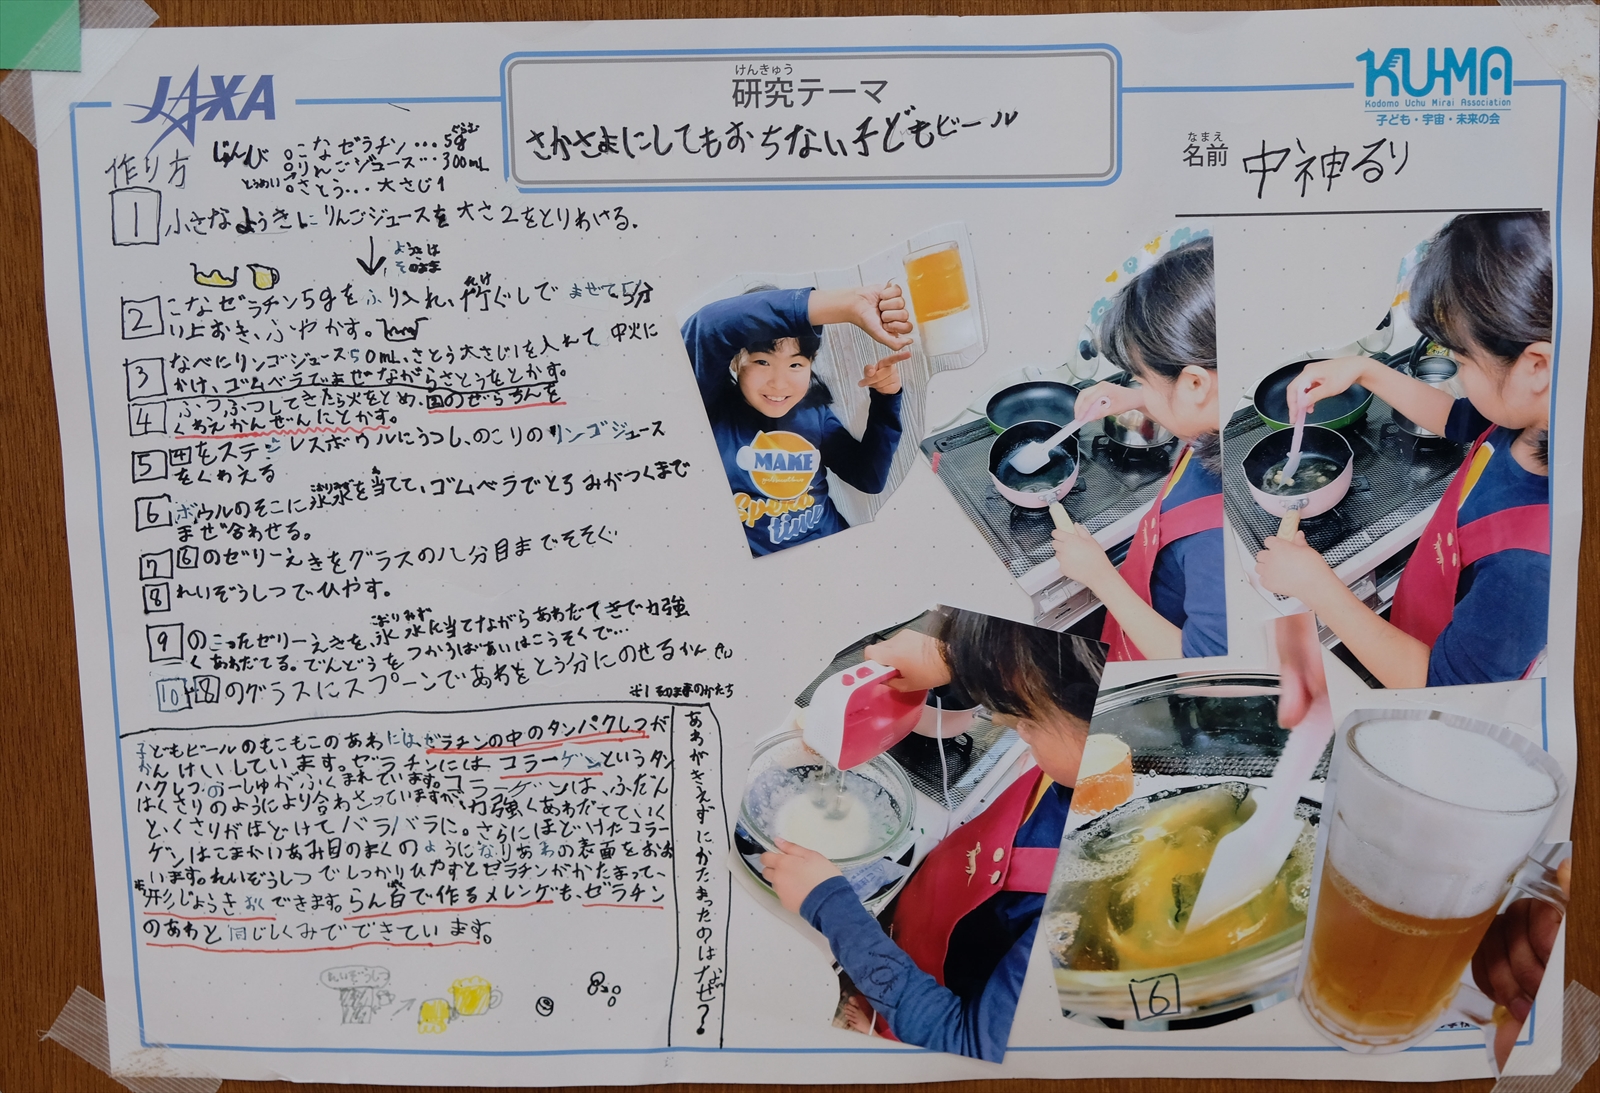 JAXA
けんきゅう
研究テーマ
さかさまにしてもおちない子どもビール
KUMA
Kodomo Uchu Mirai Association
子ども・宇宙・未来の会
なまえ
名前 中神るり
作り方
じゅんび
○こなゼラチン…5g
○りんごジュース…300mL
とうめい
○さとう…大さじ1
1 小さなようきにりんごジュースを大さ2をとりわける。
ようきは
そのまま
2 こなゼラチン5gをふり入れ、竹ぐしでまぜて。5分
い上おき、ふやかす。
3 なべにリンゴジュース50mL、さとう大さじ1を入れて中火に
かけ、ゴムベラでまぜながらさとうをとかす。
4 ふつふつしてきたら火をとめ、2のぜらちんを
くわえかんぜんにとかす。
5 4をステンレスボウルにうつし、のこりのリンゴジュース
をくわえる
6 ボウルのそこに氷水を当てて、ゴムベラでとろみがつくまで
こおりみず
まぜ合わせる。
7 6のゼリーえきをグラスの八分目までそそぐ
8 れいぞうしつでひやす。
9 のこったゼリーえきを、氷水に当てながらあわだてきで力強
こおりみず
くあわだてる。でんどうをつかうばあいはこうそくで…
10 8のグラスにスプーンであわをとう分にのせるかんせい
あわがきえずにかたまったのはなぜ？
子どもビールのもこもこのあわには、ゼラチンの中のタンパクしつが
かんけいしています。ゼラチンには、コラーゲンというタン
パクしつの一しゅがふくまれています。コラーゲンは、ふだん
はくさりのようにより合わさっていますが、力強くあわだてていく
と、くさりがほどけてバラバラに。さらにほどけたコラー
ゲンはこまかいあみ目のまくのようになりあわの表面をおお
います。れいぞうしつでしっかりひやすとゼラチンがかたまって、
形じょうきおくできます。らん白で作るメレンゲも、ゼラチン
のあわと同じしくみでできています。
れいぞうしつ
MAKE
time
6